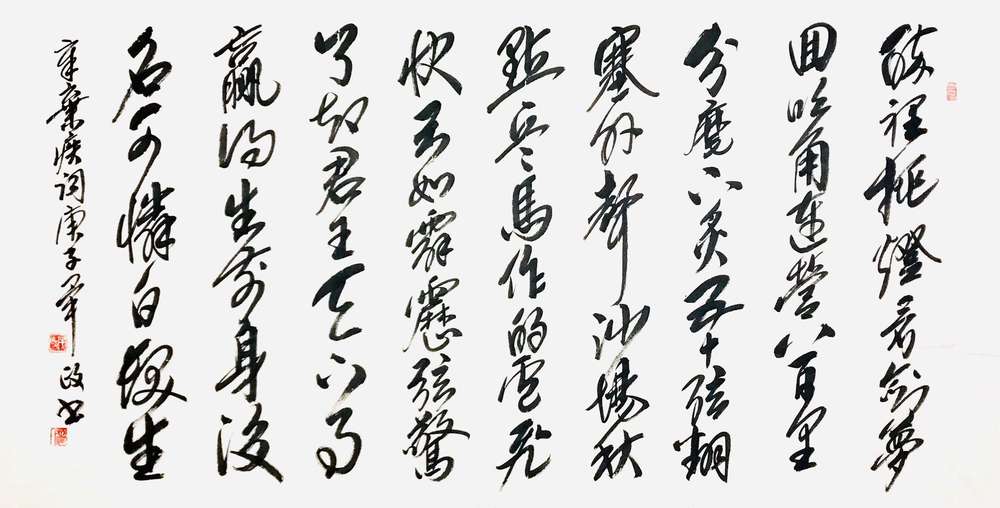 醉裡挑燈看劍夢
回吹角連營八百里
分麾下炙五十弦翻
塞外聲沙場秋
點兵馬作的盧飛
快弓如霹靂弦驚
了却君王天下事
贏得生前身後
名可憐白髮生
辛棄疾词庚子政书